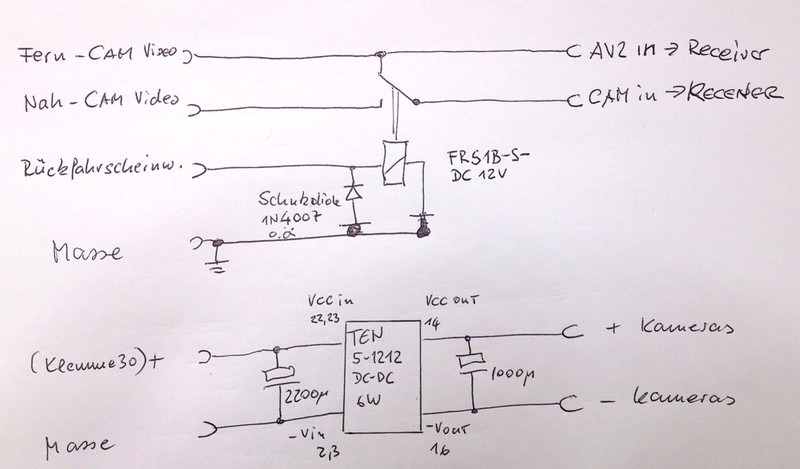 Fern-CAM Video
AV2 in → Receiver
Nah-CAM Video
CAM in → RECEIVER
Rückfahrscheinw.
FRS1B-S-
DC 12V
Schutzdiode
1N4007
o.ä
Masse
Vcc in
22,23
Vcc out
14
(Klemme30)+
TEN
5-1212
DC-DC
6W
+ Kameras
2200µ
1000µ
Masse
-Vin
2,3
-Vout
16
- Kameras